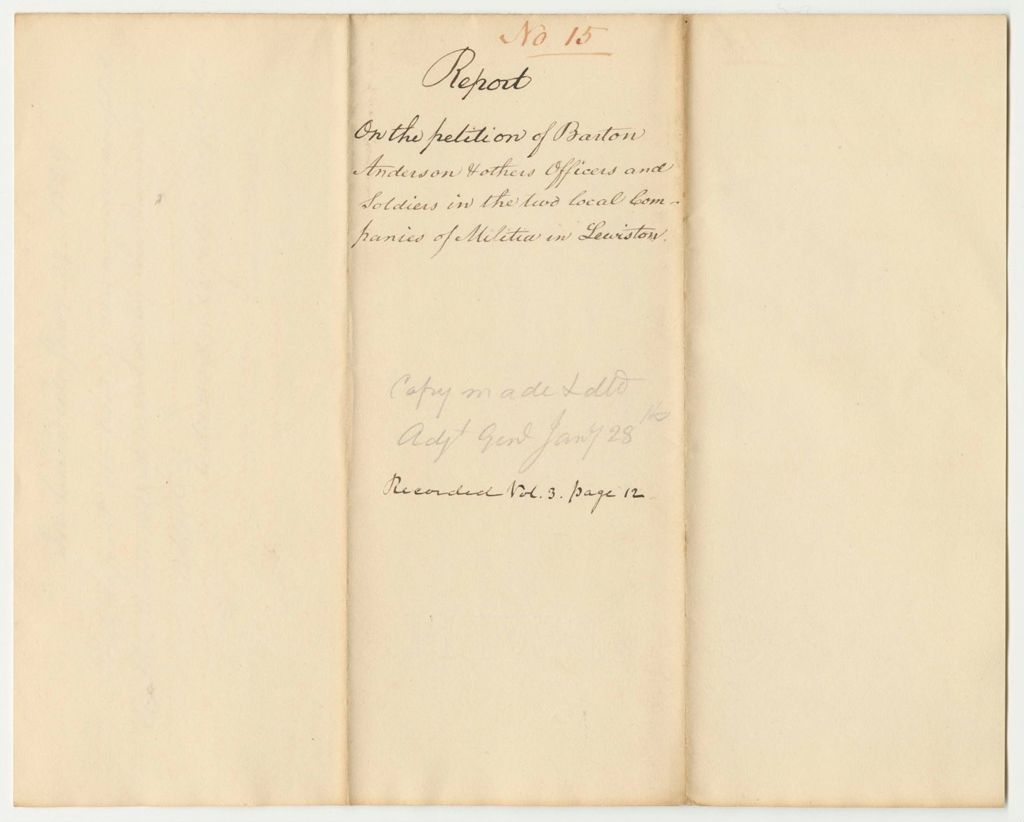 No 15
Report
On the petition of Barton
Anderson & others Officers and
Soldiers in the two local Com-
panies of Militia in Lewiston.
Copy made & dltd
Adjt Genl Jany 28
Recorded Vol. 3. page 12